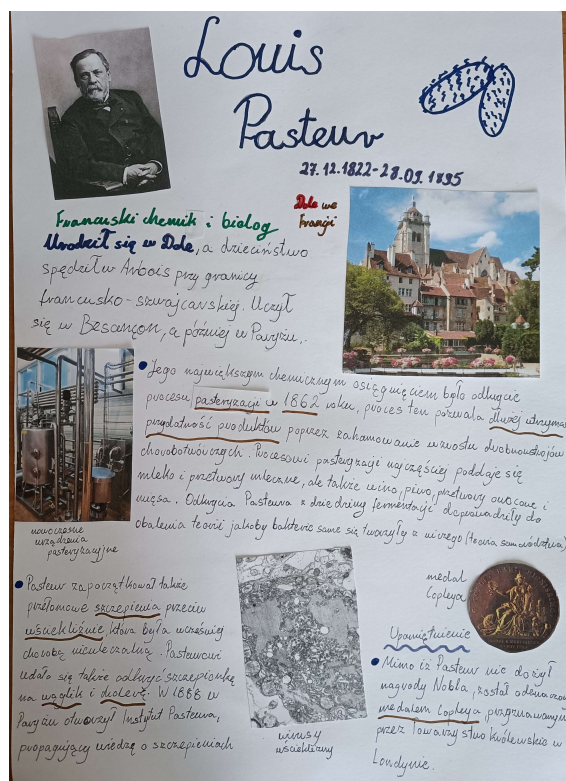 Louis
Pasteur
27.12.1822-28.09.1895
Dole we
Francji
Francuski chemik i biolog
Urodził się w Dole, a dzieciństwo
spędził w Arbois przy granicy
francusko-szwajcarskiej. Uczył
się w Besançon, a później w Paryżu.
• Jego największym chemicznym osiągnięciem było odkrycie
procesu pasteryzacji w 1862 roku, proces ten pozwala dłużej utrzymać
przydatność produktów poprzez zahamowanie wzrostu drobnoustrojów
chorobotwórczych. Procesowi pasteryzacji najczęściej poddaje się
mleko i przetwory mleczne, ale także wino, piwo, przetwory owocowe i
mięsa. Odkrycia Pasteura z dziedziny fermentacji doprowadziły do
obalenia teorii jakoby bakterie same się tworzyły z niczego (teoria samorództwa)
nowoczesne
urządzenia
pasteryzacyjne
• Pasteur zapoczątkował także
przełomowe szczepienia przeciw
wściekliźnie, która była wcześniej
chorobą nieuleczalną. Pasteurowi
udało się także odkryć szczepionkę
na wąglik i cholerę. W 1888 w
Paryżu otworzył Instytut Pasteura,
propagujący wiedzę o szczepieniach
wirusy
wścieklizny
medal
Copleya
Upamiętnienie
• Mimo iż Pasteur nie dożył
nagrody Nobla, został odznaczony
medalem Copleya przyznawanym
przez Towarzystwo Królewskie w
Londynie.